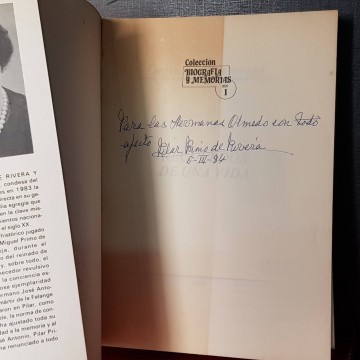 Colección
BIOGRAFIA
Y MEMORIAS
1
Para las Hermanas Olmedo con todo
afecto Pilar Primo de Rivera
6-III-84
DE UNA VIDA
E RIVERA Y
condesa del
en 1983 la
recta y
en su ge-
lia egregia que
en la clave mis-
mientos nacio-
el siglo XX.
histórico jugado
Miguel Primo de
ja, durante el
do del reinado de
y, sobre todo, el
necedor revulsivo
la conciencia es-
osa ejemplaridad
ermano José Anto-
mártir de la Falange
aron en Pilar, como
e, la norma de con-
ha ajustado toda su
idad a la memoria y al
osé Antonio, Pilar Pri-
renunciado a todo